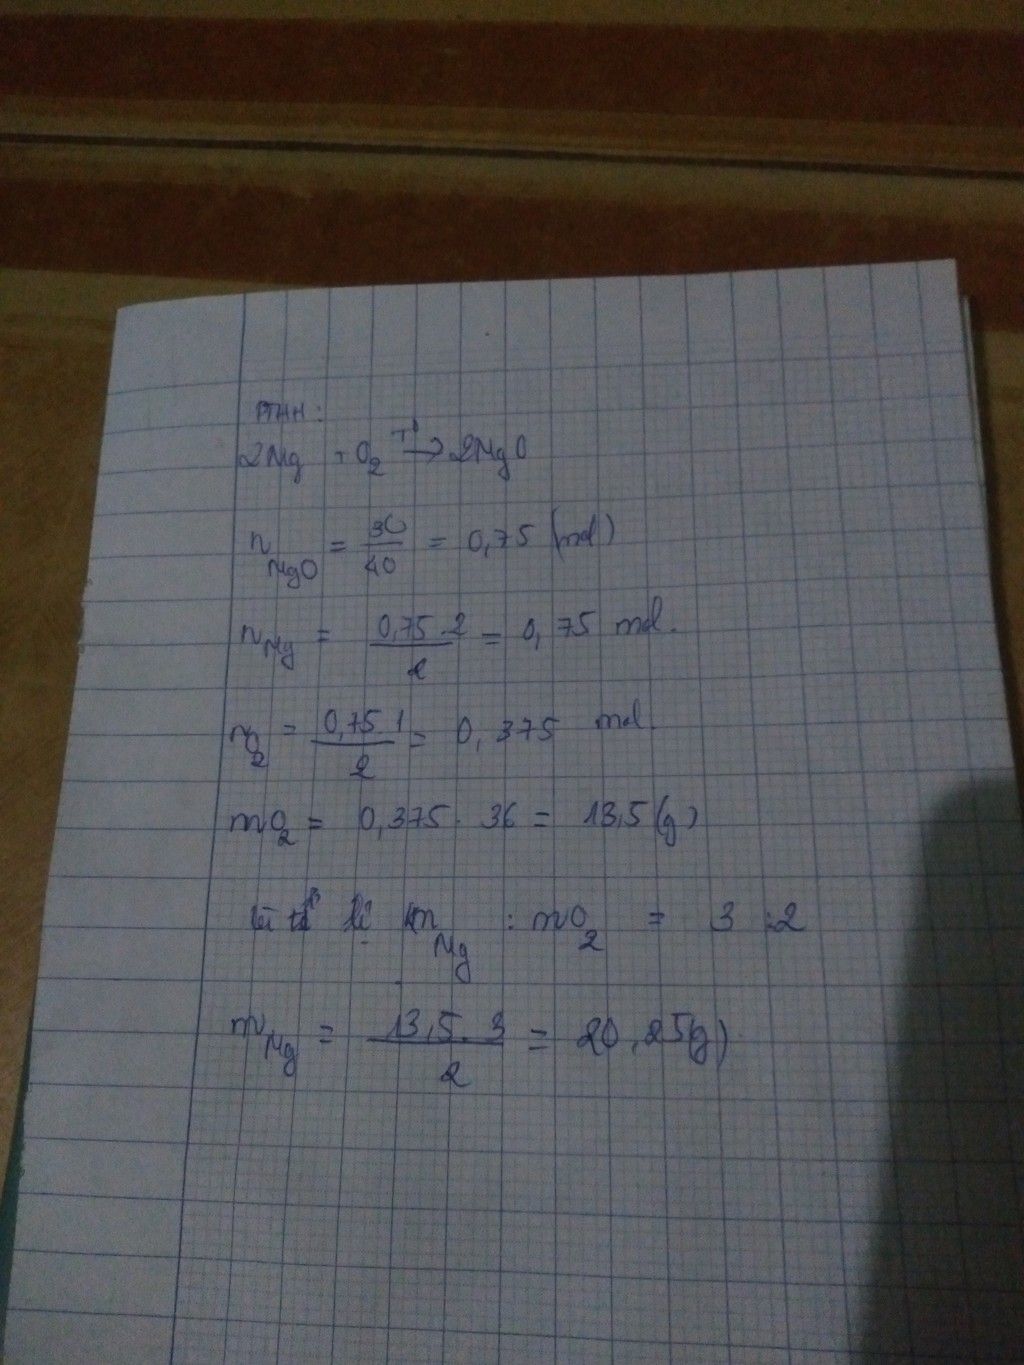 PTHH:
2Mg + O2 T° → 2MgO
nMgO = 30/40 = 0,75 (mol)
nMg = 0,75.2/2 = 0,75 mol.
nO2 = 0,75.1/2 = 0,375 mol.
mO2 = 0,375 . 36 = 13,5 (g)
mMg : mO2 = 3 : 2
mMg = 13,5 . 3/2 = 20,25(g)